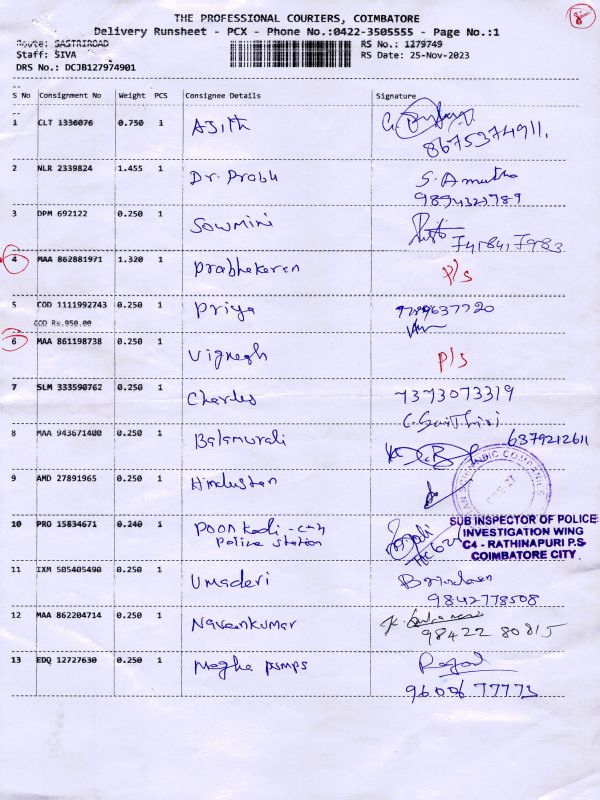 THE PROFESSIONAL COURIERS, COIMBATORE
Delivery Runsheet - PCX - Phone No.:0422-3505555 - Page No.:1
Route: SASTRIROAD RS No.: 1279749
Staff: SIVA RS Date: 25-Nov-2023
DRS No.: DCJB127974901
S No Consignment No Weight PCS Consignee Details Signature
1 CLT 1336076 0.750 1 Ajith
8675374911,
2 NLR 2339824 1.455 1 Dr. Prabhu S. Amutha
9894323789
3 DPM 692122 0.250 1 Sowmini
4 MAA 862881971 1.320 1 Prabhakaran P/s
5 COD 1111992743 0.250 1 Priya
COD Rs.950.00
6 MAA 861198738 0.250 1 Vignesh P/s
7 SLM 333590762 0.250 1 Charles 7373073319
8 MAA 943671400 0.250 1 Balamurali 6379212611
9 AMD 27891965 0.250 1 Hindustan
10 PRO 15834671 0.240 1 Poon Kodi - C4
Police Station
SUB INSPECTOR OF POLICE
INVESTIGATION WING
C4 - RATHINAPURI P.S
COIMBATORE CITY
11 IXM 505405490 0.250 1 Umadevi
9842778508
12 MAA 862204714 0.250 1 Naveenkumar
98422 80815
13 EDQ 12727630 0.250 1 Megha pumps
9600677773